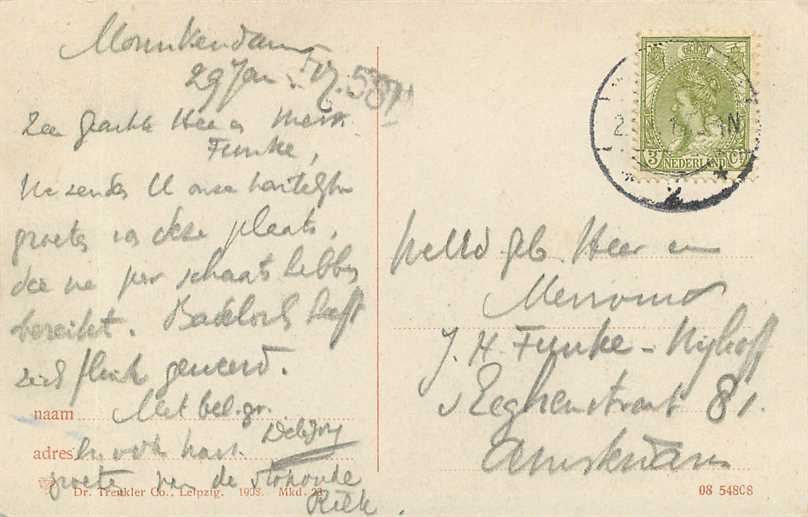 Monnikendam
29 Jan.
Zeer geachte Heer en Mevr.
Funke,
We zenden U onze hartelijke
groeten van deze plaats,
die we per schaats hebben
bereikt. heeft
zich flink geweerd.
naam Met bel. gr.
adres
groete van de stokoude
Riek.
Dr. Trenkler Co., Leipzig. 1908. Mkd. 23
3 Ct
NEDERLAND
WelEd geb Heer en
Mevrouw
J. H. Funke-Nijhoff
v Eeghenstraat 81.
Amsterdam
08 54808